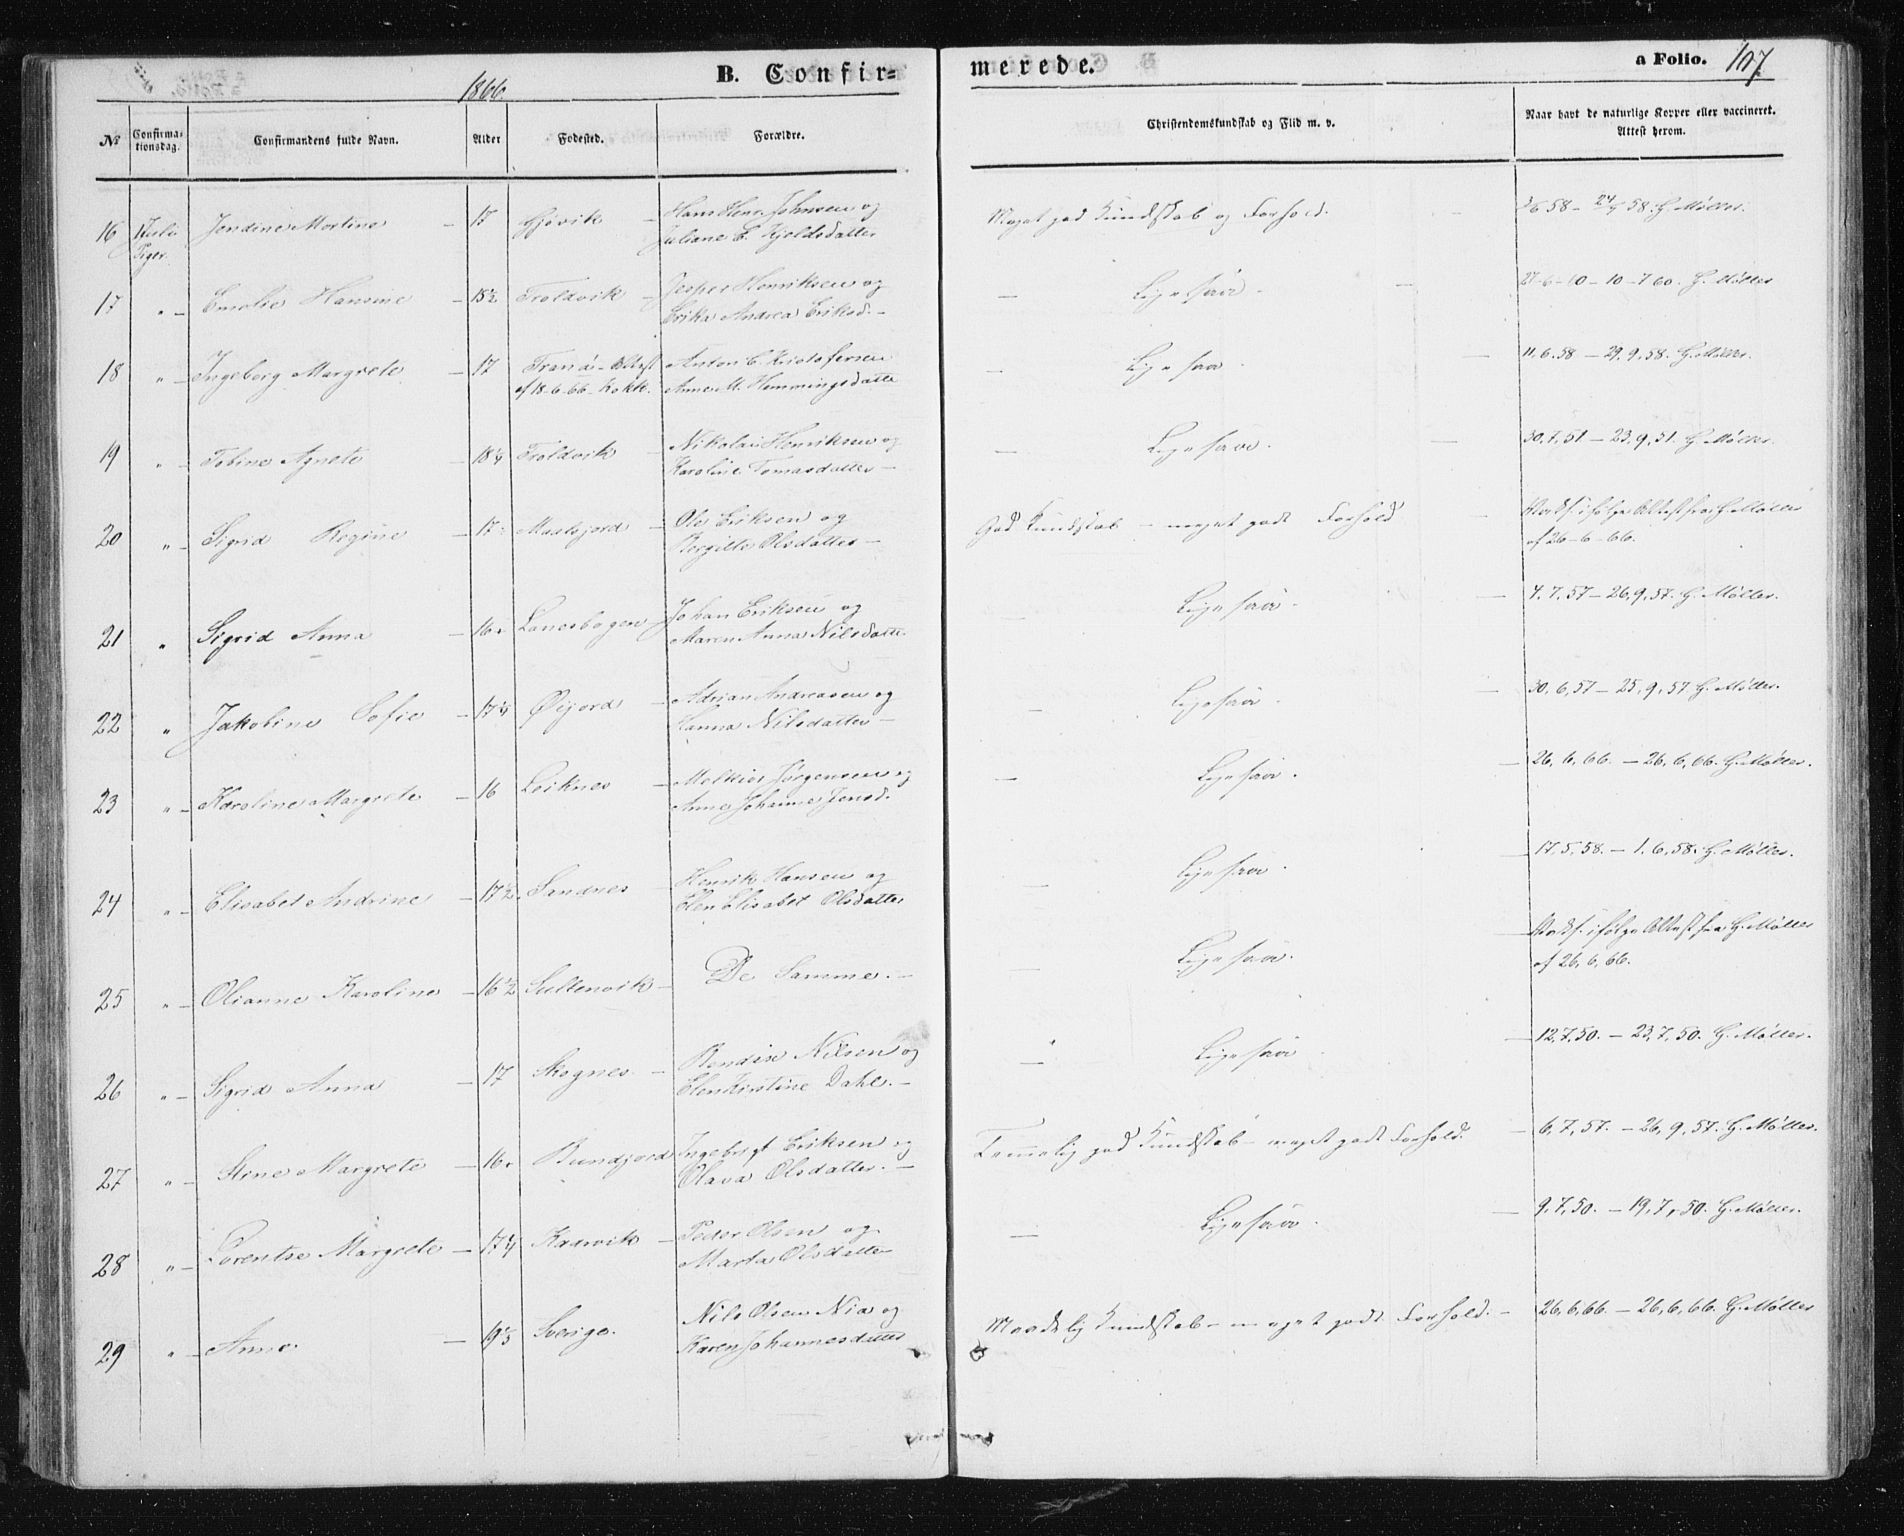 1866. B. Confir= merede. a Folio. 107
No Confirma-tionsdag. Confirmandens fulde Navn. Alder Fødested. Forældre. Christendomskundskab og Flid m. v. Naar havt de naturlige Kopper eller vaccineret. Attest herom.
16 1 Juli Piger. Jendine Martine – 17 Gjøvik – Hans Henr. Johnsen og
Juliane E. Kjeldsdatter
Meget god Kundskab og Forhold. 58 – 24/9 58. G. Møller.
17 " – Emelie Hansine – 15½ Troldvik – Jesper Henriksen og
Erika Andrea Eriksd. –
– Ligesaa – 10–7 60. G. Møller
18 " – Ingeborg Margrete – 17 Tranø – Attest Anton C. Kristofersen
af 18–6–66 – Kokk. Anne M. Hemmingsdatte
– Ligesaa – 11.6.58 – 29.9.58. G. Møller.
19 " – Tobine Agnete – 18¼ Troldvik – Nikolai Henriksen og
Karoline Tomasdatter –
– Ligesaa. – 30,7,51 – 23,9,51. G. Møller.
20 " – Sigrid Regine – 17 – Ole Eriksen og
Bergitte Olsdatter –
God Kundskab – meget godt Forhold – ifølge Attest fra G. Møller
af 26–6–66.
21 " Sigrid Anna – 16 Lanesbogen Johan Eriksen og
Maren Anna Nilsdatte
Ligesaa. – 4.7,57 – 26,9,57. G. Møller.
22 " Jakobine Sofie – 17¼ Øijord – Adrian Andreasen og
Hanna Nilsdatter –
– Ligesaa. – 30,6,57 – 25,9,57 G. Møller.
23 " – Karoline Margrete – 16 Leiknes – Melkior Jørgensen og
Anne Johanna Jensd.
– Ligesaa. – 26,6,66. – 26,6,66. G. Møller.
24 " – Elisabet Andrine – 17½ Sandnes – Henrik Hansen og
Elen Elisabet Olsdatter
– Ligesaa. – 17,5,58. – 1.6,58. G. Møller.
25 " – Olianne Karoline – 16½ Sultenvik – De Samme. –
– Ligesaa. – ifølge Attest fra G. Møller
af 26,6,66.
26 " – Sigrid Anna – 17 Skognes – Bendix Nilsen og
Elen Kirstine Dahl. –
– Ligesaa – 12,7,50. – 23,7,50. G. Møller.
27 " – Stine Margrete – 16 Bundjord Ingebrigt Eriksen og
Olava Olsdatter. –
Temmelig god Kundskab – meget godt Forhold. – 6,7,57. – 26,9,57. G. Møller.
28 " – Lorentse Margrete – 17¼ Kaarvik – Peder Olsen og
Marta Olsdatter
– Ligesaa. – 9,7,50. – 19,7,50. G. Møller.
29 " – Anne – 19⅓ Sverige. Nils Olsen Nia og
Karen Johannesdatter
Maadelig Kundskab – meget godt Forhold. – 26,6,66. – 26,6,66. G. Møller